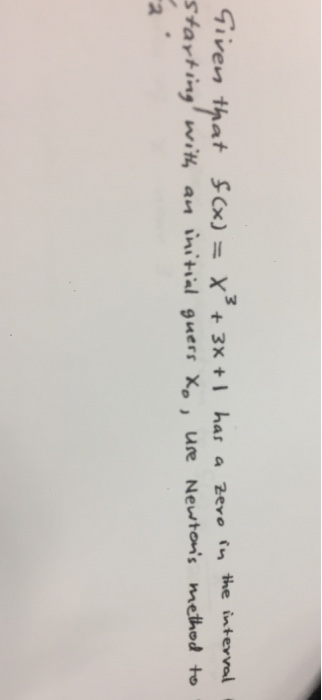 Given that f(x) = x³ + 3x + 1 has a zero in the interval
starting with an initial guess x₀, use Newton's method to